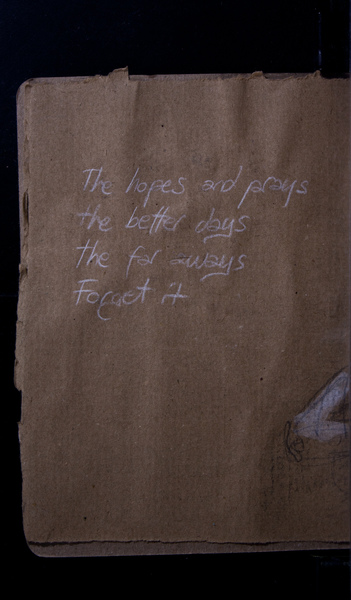 The hopes and prays
the better days
the far aways
Forget it